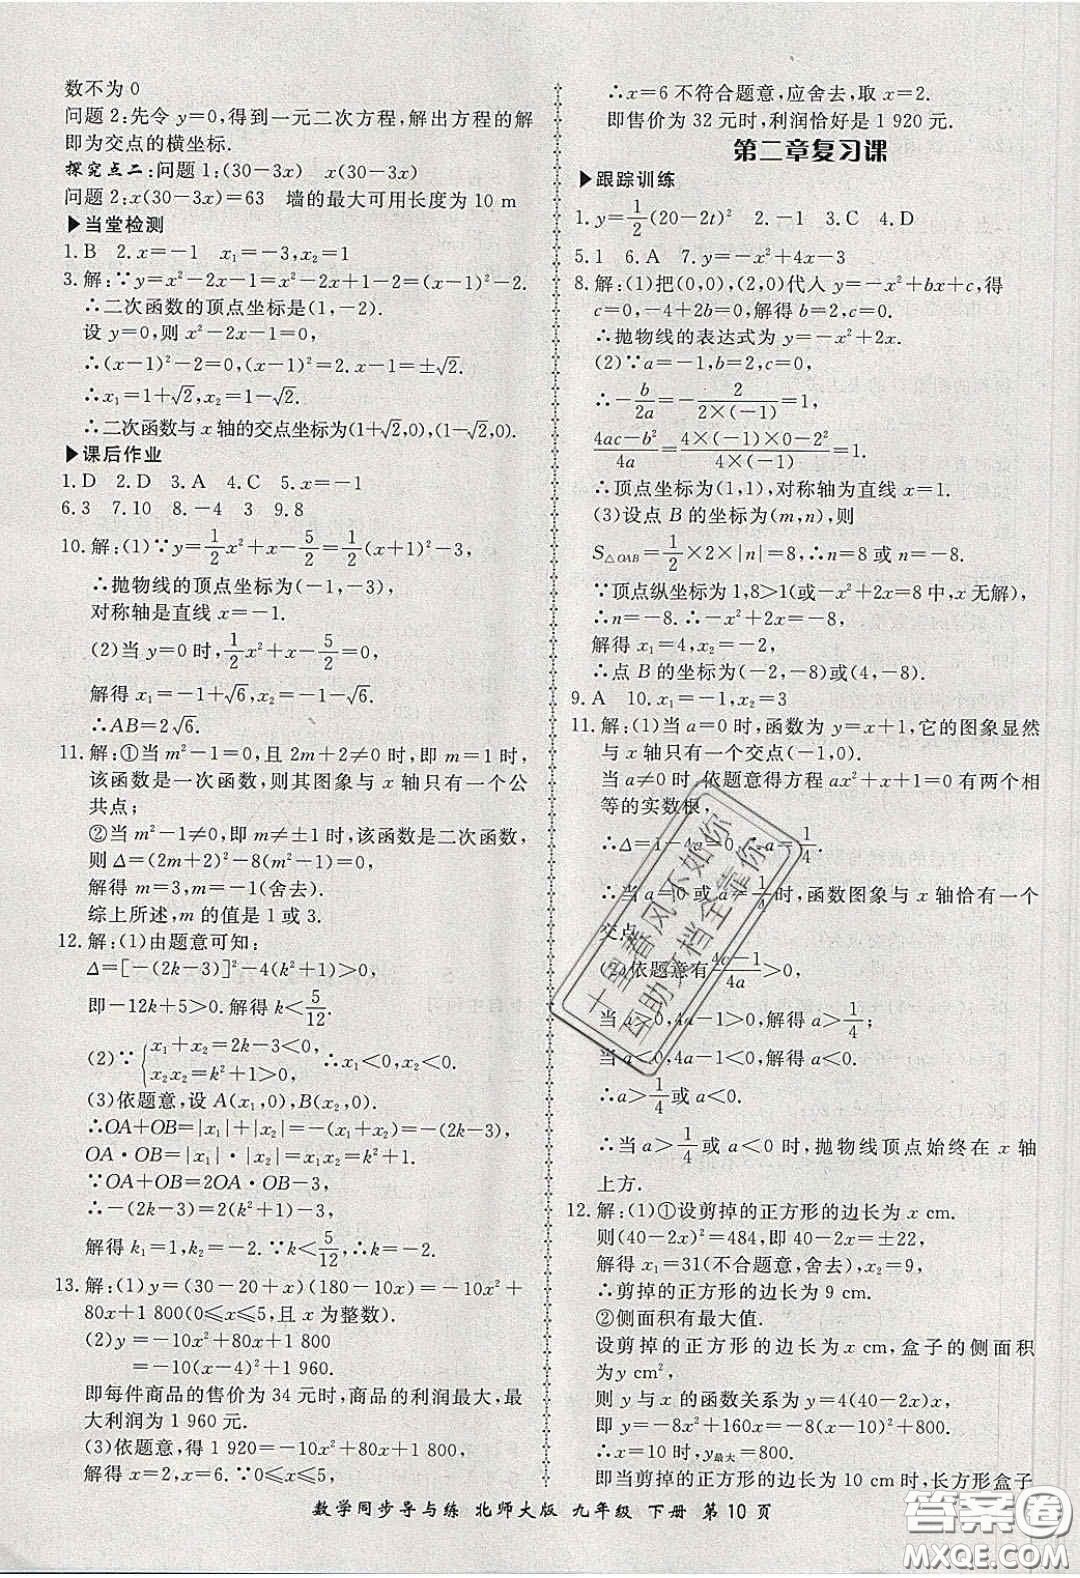 数不为 0
问题 2:先令 y=0,得到一元二次方程,解出方程的解
即为交点的横坐标.
探究点二:问题 1:(30-3x) x(30-3x)
问题 2:x(30-3x)=63 墙的最大可用长度为 10 m
▶当堂检测
1. B 2. x=-1 x₁=-3,x₂=1
3. 解:∵y=x²-2x-1=x²-2x+1-2=(x-1)²-2.
∴二次函数的顶点坐标是(1,-2).
设 y=0,则 x²-2x-1=0,
∴(x-1)²-2=0,(x-1)²=2. x-1=±√2.
∴x₁=1+√2,x₂=1-√2.
∴二次函数与 x 轴的交点坐标为(1+√2,0),(1-√2,0).
▶课后作业
1. D 2. D 3. A 4. C 5. x=-1
6. 3 7. 10 8. -4 3 9. 8
10. 解:(1)∵y=1/2x²+x-5/2=1/2(x+1)²-3,
∴抛物线的顶点坐标为(-1,-3).
对称轴是直线 x=-1.
(2)当 y=0 时,1/2x²+x-5/2=0,
解得 x₁=-1+√6,x₂=-1-√6.
∴AB=2√6.
11. 解:①当 m²-1=0,且 2m+2≠0 时,即 m=1 时,
该函数是一次函数,则其图象与 x 轴只有一个公
共点;
②当 m²-1≠0,即 m≠±1 时,该函数是二次函数,
则 Δ=(2m+2)²-8(m²-1)=0,
解得 m=3,m=-1(舍去).
综上所述,m 的值是 1 或 3.
12. 解:(1)由题意可知:
Δ=[-(2k-3)]²-4(k²+1)>0,
即-12k+5>0. 解得 k<5/12.
(2)∵{x₁+x₂=2k-3<0,
x₂x₂=k²+1>0, ∴x₁<0,x₂<0.
(3)依题意,设 A(x₁,0),B(x₂,0).
∴OA+OB=|x₁|+|x₂|=-(x₁+x₂)=-(2k-3),
OA·OB=|x₁|·|x₂|=x₁x₂=k²+1.
∵OA+OB=2OA·OB-3,
∴-(2k-3)=2(k²+1)-3,
解得 k₁=1,k₂=-2. ∵k<5/12,∴k=-2.
13. 解:(1)y=(30-20+x)(180-10x)=-10x²+
80x+1 800(0≤x≤5,且 x 为整数).
(2)y=-10x²+80x+1 800
=-10(x-4)²+1 960.
即每件商品的售价为 34 元时,商品的利润最大,最
大利润为 1 960 元.
(3)依题意,得 1 920=-10x²+80x+1 800,
解得 x=2,x=6. ∵0≤x≤5,
∴x=6 不符合题意,应舍去,取 x=2.
即售价为 32 元时,利润恰好是 1 920 元.
第二章复习课
▶跟踪训练
1. y=1/2(20-2t)² 2. -1 3. C 4. D
5. 1 6. A 7. y=-x²+4x-3
8. 解:(1)把(0,0),(2,0)代入 y=-x²+bx+c,得
c=0,-4+2b=0,解得 b=2,c=0.
∴抛物线的表达式为 y=-x²+2x.
(2)∵a=-1,b=2,c=0.
∴-b/2a=-2/(2×(-1))=1,
(4ac-b²)/4a=(4×(-1)×0-2²)/(4×(-1))=1.
∴顶点坐标为(1,1),对称轴为直线 x=1.
(3)设点 B 的坐标为(m,n),则
S△OAB=1/2×2×|n|=8,∴n=8 或 n=-8.
∵顶点纵坐标为 1,8>1(或-x²+2x=8 中,x 无解),
∴n=-8. ∴-x²+2x=-8,
解得 x₁=4,x₂=-2.
∴点 B 的坐标为(-2,-8)或(4,-8).
9. A 10. x₁=-1,x₂=3
11. 解:(1)当 a=0 时,函数为 y=x+1,它的图象显然
与 x 轴只有一个交点(-1,0).
当 a≠0 时,依题意得方程 ax²+x+1=0 有两个相
等的实数根,
∴Δ=1-4a=0,∴a=1/4.
∴当 a=0 或 a=1/4时,函数图象与 x 轴恰有一个
交点.
(2)依题意有(4a-1)/4a>0,
当 a>0,4a-1>0,解得 a>1/4;
当 a<0,4a-1<0,解得 a<0.
∴a>1/4或 a<0.
∴当 a>1/4或 a<0 时,抛物线顶点始终在 x 轴
上方.
12. 解:(1)①设剪掉的正方形的边长为 x cm.
则(40-2x)²=484,即 40-2x=±22,
解得 x₁=31(不合题意,舍去),x₂=9,
∴剪掉的正方形的边长为 9 cm.
②侧面积有最大值.
设剪掉的正方形的边长为 x cm,盒子的侧面积
为y cm²,
则 y 与 x 的函数关系为 y=4(40-2x)x,
即 y=-8x²+160x=-8(x-10)²+800.
∴x=10 时,y最大=800.
即当剪掉的正方形的边长为 10 cm 时,长方形盒子
数学同步导与练 北师大版 九年级 下册 第 10 页
十里春风不如你
自助文档全靠你
答案圈
MXQE.COM